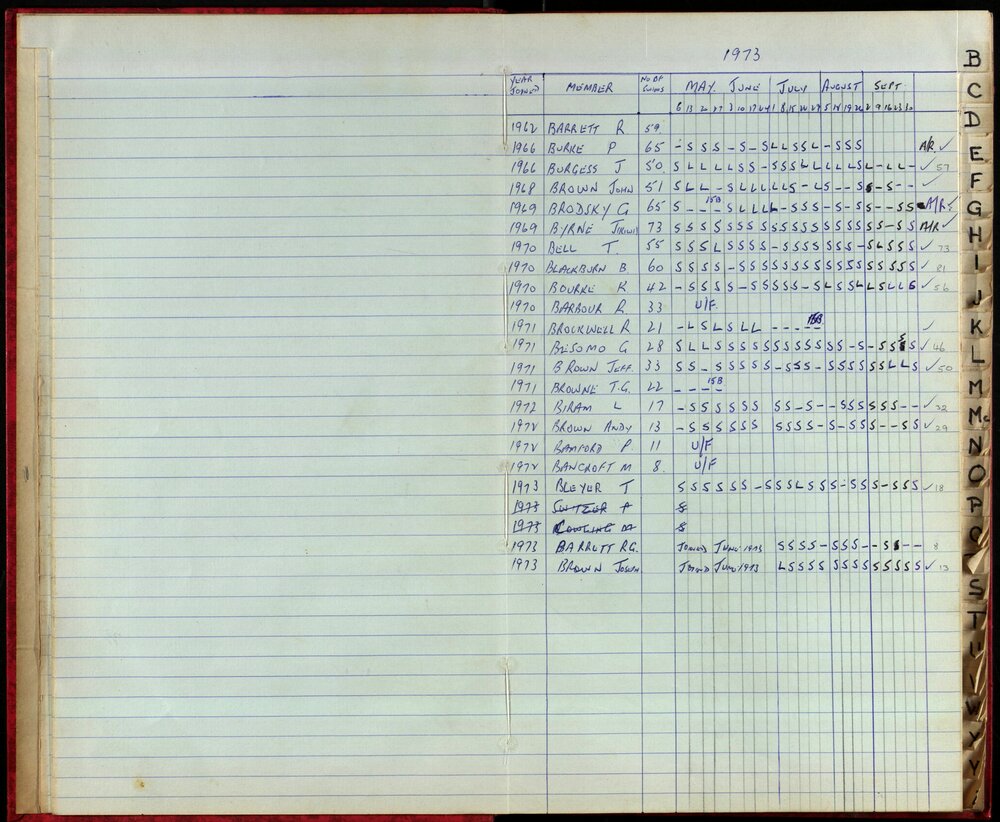 1973
YEAR JOINED MEMBER NO OF SWIMS MAY JUNE JULY AUGUST SEPT
6 13 20 27 3 10 17 24 1 8 15 22 29 5 12 19 26 2 9 16 23 30
1962 BARRETT R 59.
1966 BURKE P 65 - S S S - S - S L L S S L - S S S A/R ✓
1966 BURGESS J 50. S L L L L S S - S S S L L L L L S L - L L - ✓ 57
1968 BROWN JOHN 51 S L L - S L L L L L S - L S - - S S - S - - ✓
1969 BRODSKY G 65 S - - - 15B S L L L L - S S S - S - S S - - S S A/R ✓
1969 BYRNE J 73 S S S S S S S S S S S S S S S S S S S - S S A/R ✓
1970 BELL T. 55 S S S L S S S S - S S S S S S S - S L S S S ✓ 73
1970 BLACKBURN B 60 S S S S - S S S S S S S S S S S S S S S S S ✓ 81
1970 BOURKE K 42 - S S S S - S S S S S - S L S S L L S L L S ✓ 56
1970 BARBOUR R. 33 U/F.
1971 BROCKWELL R 21 - L S L S L L - - - - - 15B ✓
1971 BESOMO G 28 S L L S S S S S S S S S S S S - S - S S S S ✓ 46
1971 BROWN JEFF. 33 S S - S S S S S - S S S - S S S S S S L L S ✓ 50
1971 BROWNE T.G. 22 - - - - 15B
1972 BIRAM L 17 - S S S S S S S S - S - - S S S S S S - - ✓ 32
1972 BROWN ANDY 13 - S S S S S S S S S S - S - S S S S - - S S ✓ 29
1972 BAMFORD P. 11 U/F
1972 BANCROFT M 8. U/F
1973 BLEYER T S S S S S S - S S S L S S S - S S S - S S S ✓ 18
1973 SWITZER P S
1973 COWLING S
1973 BARRETT RG. JOINED JUNE 1973 S S S S - S S S - - S S - - 8
1973 BROWN JOSEPH JOINED JUNE 1973 L S S S S S S S S S S S S S ✓ 13
B
C
D
E
F
G
H
I
J
K
L
M
Mc
N
O
P
Q
S
T
U
W
Y